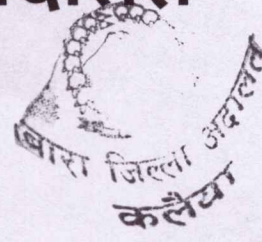 बारा जिल्ला अदालत
कलैया